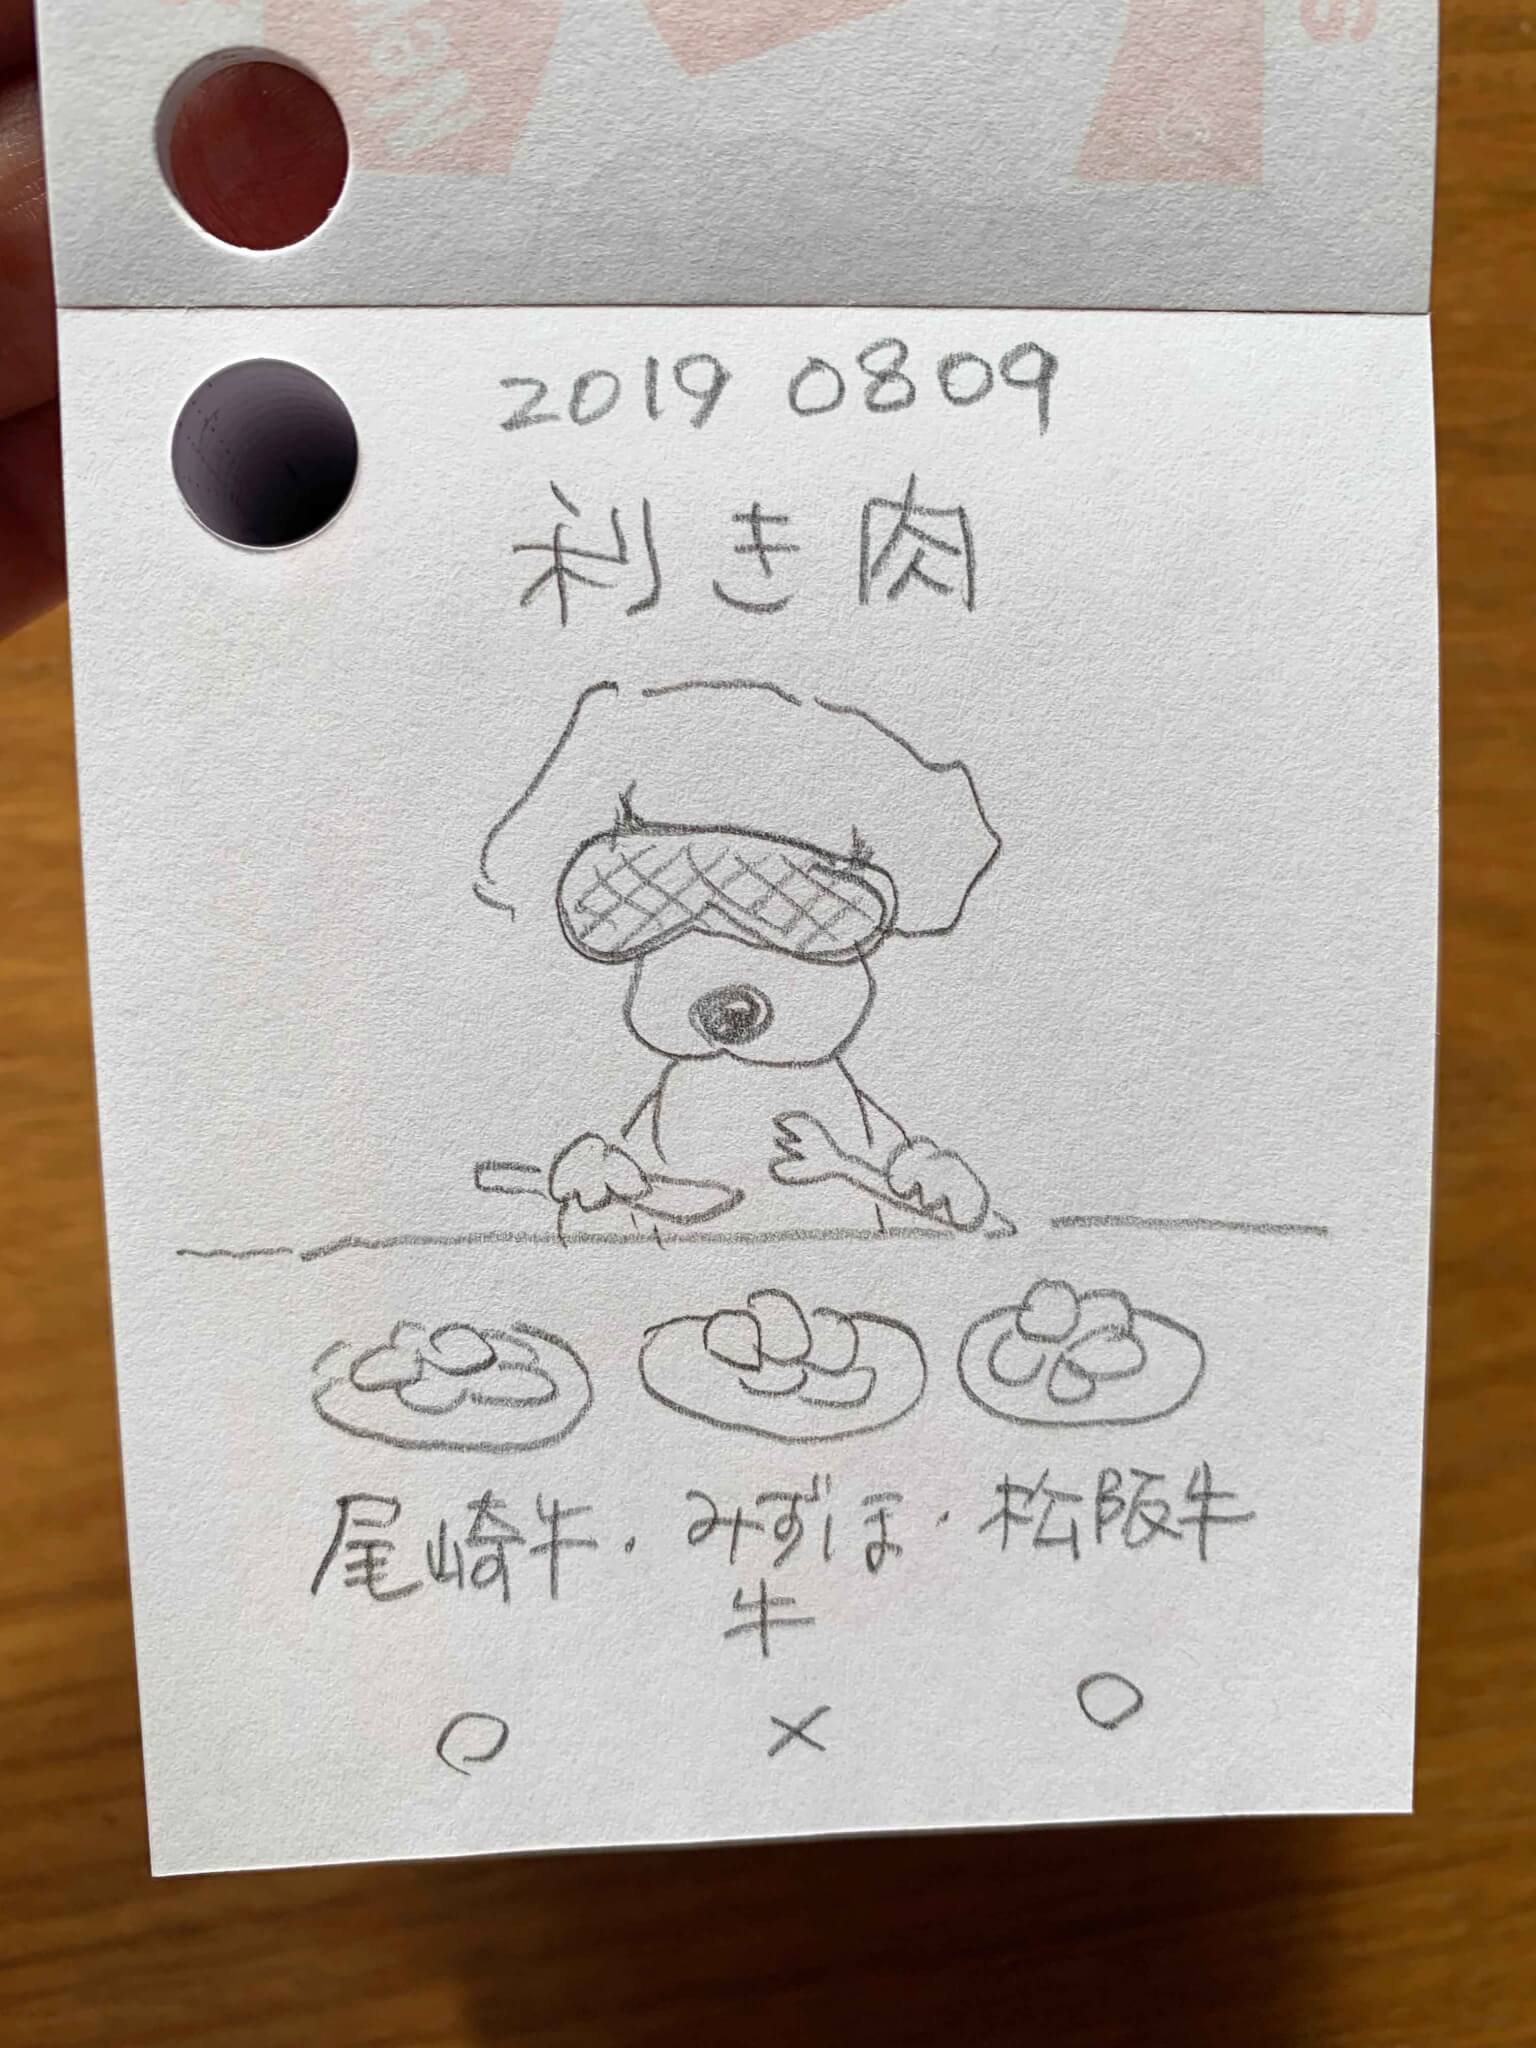 2019 0809
利き肉
尾崎牛・みずほ・松阪牛
牛
○ × ○